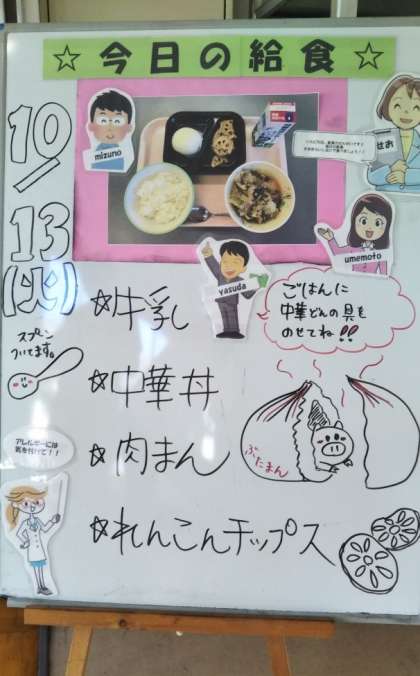 ☆今日の給食☆
10/
13
(火)
mizuno
せお
umemoto
yasuda
スプーン
ついてます。
☆牛乳
ごはんに
中華どんの具を
のせてね!!
☆中華丼
☆肉まん
ぶたまん
アレルギーには
気を付けて!!
☆れんこんチップス